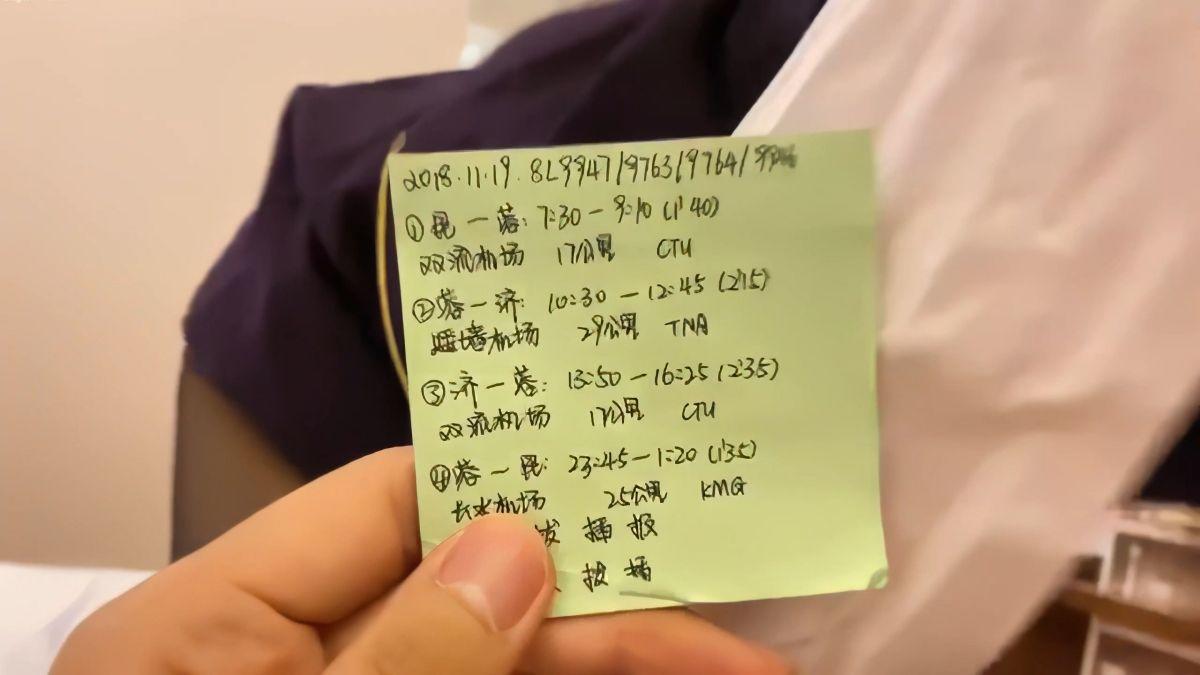 2018.11.19. 8L9947/9763/9764/
①昆一蓉: 7:30-9:10 (1'40)
双流机场 17公里 CTU
②蓉一济: 10:30-12:45 (2'15)
遥墙机场 29公里 TNA
③济一蓉: 13:50-16:25 (2'35)
双流机场 17公里 CTU
④蓉一昆: 23:45-1:20 (1'35)
长水机场 25公里 KMG
播报
播